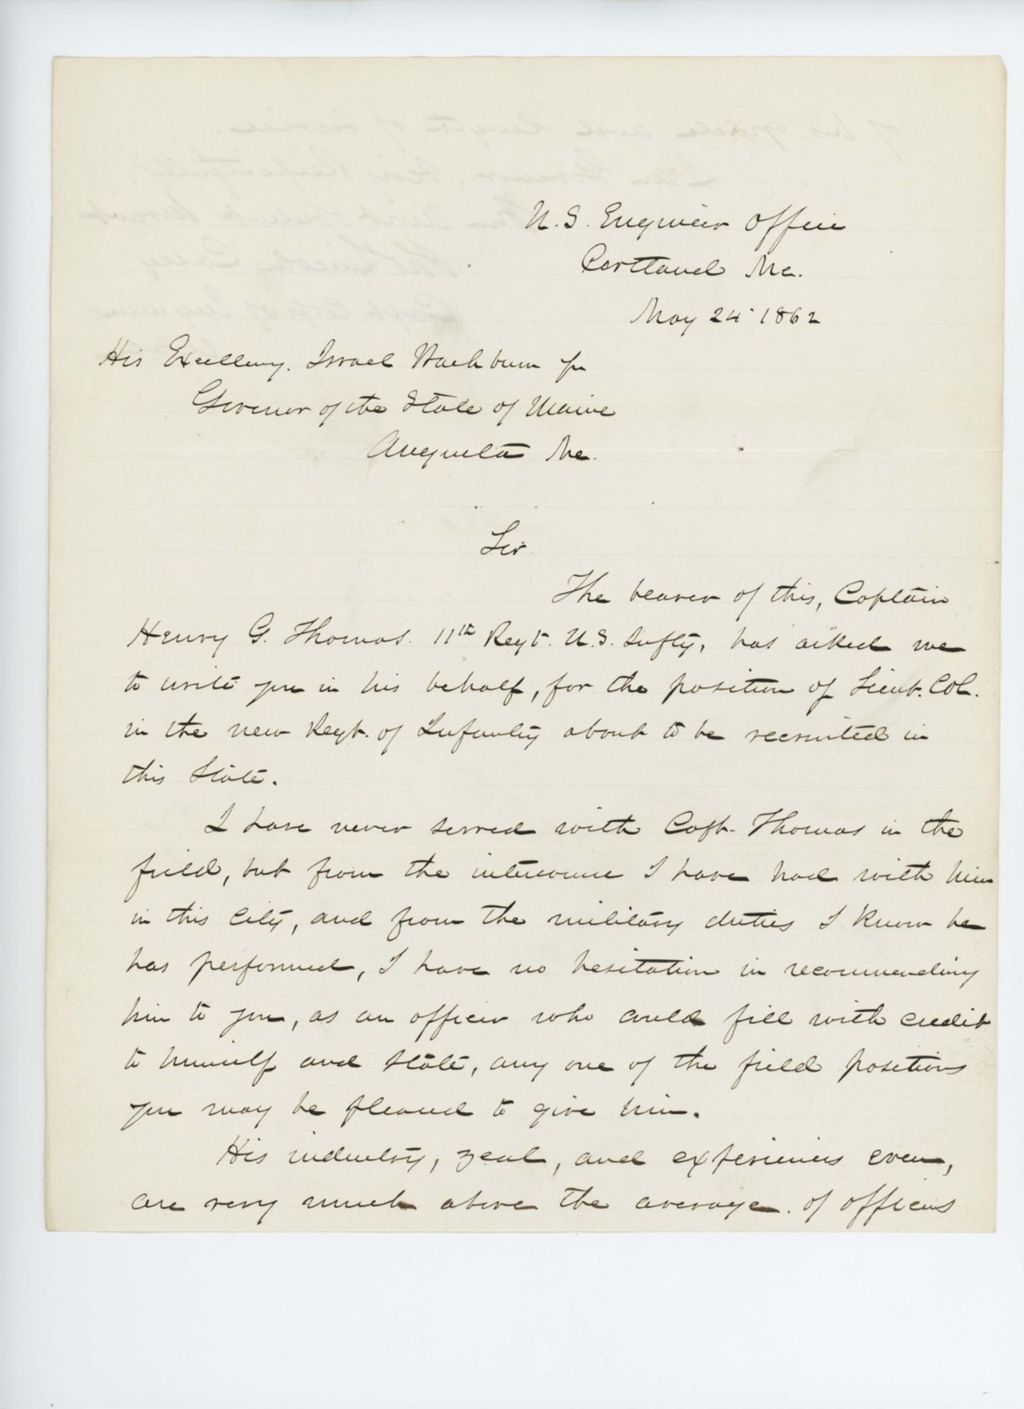 U.S. Engineer Office
Portland Me.
May 24 1862
His Excellency. Israel Washburn Jr
Governor of the State of Maine
Augusta Me.
Sir
The bearer of this, Captain
Henry G. Thomas. 11th Regt. U.S. Infty, has asked me
to write you in his behalf, for the position of Lieut. Col.
in the new Regt. of Infantry about to be recruited in
this State.
I have never served with Capt. Thomas in the
field, but from the intercourse I have had with him
in this City, and from the military duties I know he
has performed, I have no hesitation in recommending
him to you, as an officer who could fill with credit
to himself and State, any one of the field positions
you may be pleased to give him.
His industry, zeal, and experience even,
are very much above the average of officers